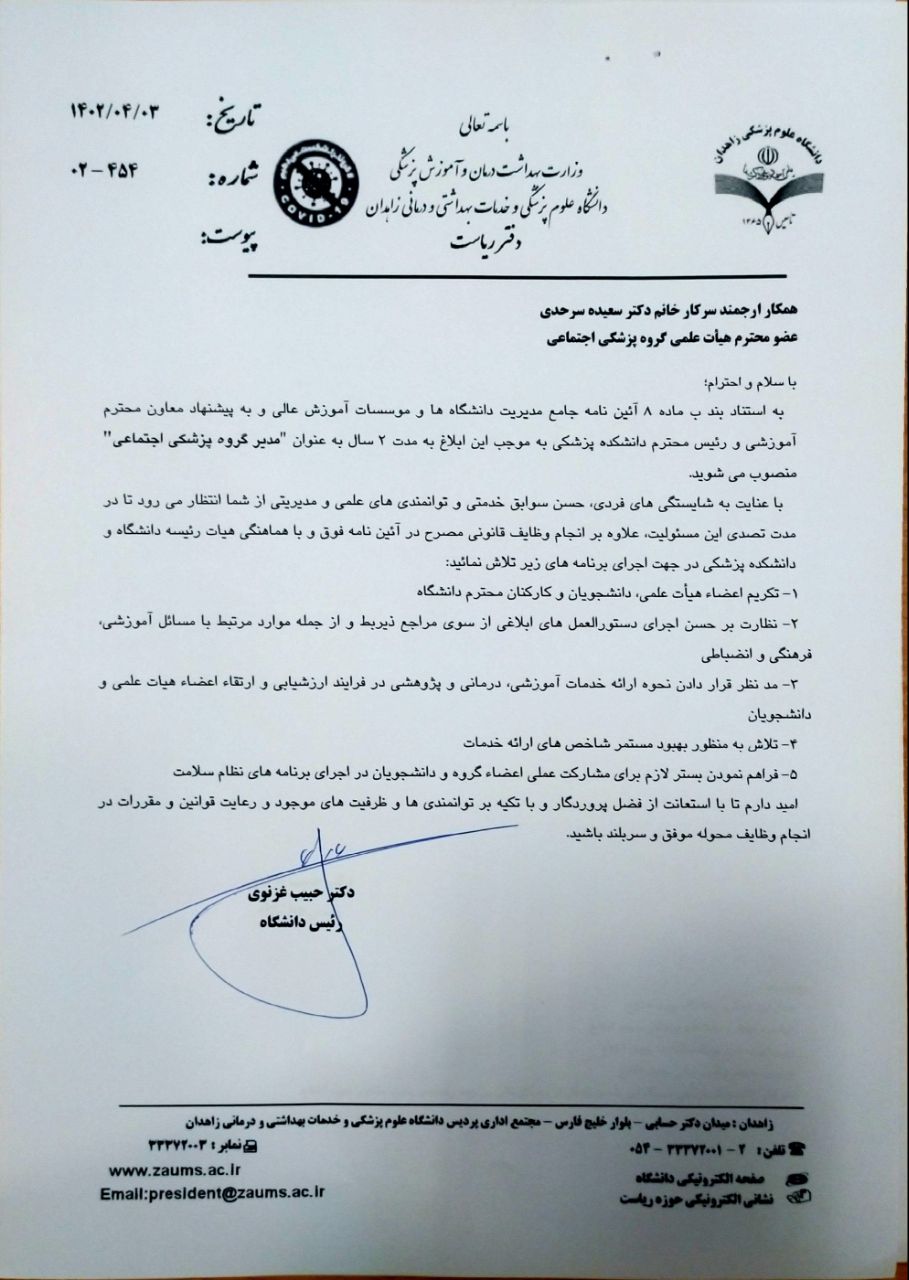 باسمه تعالی
وزارت بهداشت درمان و آموزش پزشکی
دانشگاه علوم پزشکی و خدمات بهداشتی و درمانی زاهدان
دفتر ریاست
دانشگاه علوم پزشکی زاهدان
تاسیس ۱۳۶۵
COVID-19
تاریخ: ۱۴۰۲/۰۴/۰۳
شماره: ۰۲ – ۴۵۴
پیوست:
همکار ارجمند سرکار خانم دکتر سعیده سرحدی
عضو محترم هیأت علمی گروه پزشکی اجتماعی
با سلام و احترام؛
به استناد بند ب ماده ۸ آئین نامه جامع مدیریت دانشگاه ها و موسسات آموزش عالی و به پیشنهاد معاون محترم
آموزشی و رئیس محترم دانشکده پزشکی به موجب این ابلاغ به مدت ۲ سال به عنوان "مدیر گروه پزشکی اجتماعی"
منصوب می شوید.
با عنایت به شایستگی های فردی، حسن سوابق خدمتی و توانمندی های علمی و مدیریتی از شما انتظار می رود تا در
مدت تصدی این مسئولیت، علاوه بر انجام وظایف قانونی مصرح در آئین نامه فوق و با هماهنگی هیات رئیسه دانشگاه و
دانشکده پزشکی در جهت اجرای برنامه های زیر تلاش نمائید:
۱- تکریم اعضاء هیأت علمی، دانشجویان و کارکنان محترم دانشگاه
۲- نظارت بر حسن اجرای دستورالعمل های ابلاغی از سوی مراجع ذیربط و از جمله موارد مرتبط با مسائل آموزشی،
فرهنگی و انضباطی
۳- مد نظر قرار دادن نحوه ارائه خدمات آموزشی، درمانی و پژوهشی در فرایند ارزشیابی و ارتقاء اعضاء هیات علمی و
دانشجویان
۴- تلاش به منظور بهبود مستمر شاخص های ارائه خدمات
۵- فراهم نمودن بستر لازم برای مشارکت عملی اعضاء گروه و دانشجویان در اجرای برنامه های نظام سلامت
امید دارم تا با استعانت از فضل پروردگار و با تکیه بر توانمندی ها و ظرفیت های موجود و رعایت قوانین و مقررات در
انجام وظایف محوله موفق و سربلند باشید.
دکتر حبیب غزنوی
رئیس دانشگاه
زاهدان : میدان دکتر حسابی – بلوار خلیج فارس – مجتمع اداری پردیس دانشگاه علوم پزشکی و خدمات بهداشتی و درمانی زاهدان
تلفن: ۲ – ۳۳۳۷۲۰۰۱ – ۰۵۴ نمابر : ۳۳۳۷۲۰۰۳
صفحه الکترونیکی دانشگاه www.zaums.ac.ir
نشانی الکترونیکی حوزه ریاست Email:president@zaums.ac.ir